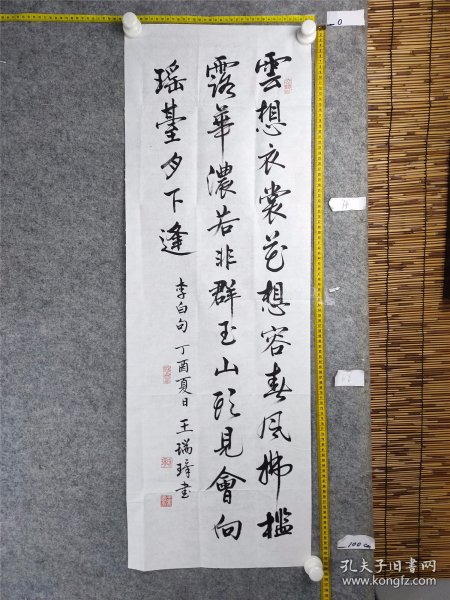 雲想衣裳花想容春風拂檻
露華濃若非群玉山頭見會向
瑤臺月下逢
李白句 丁酉夏日 王瑞璋书
0
100 cm
孔夫子旧书网
www.kongfz.com